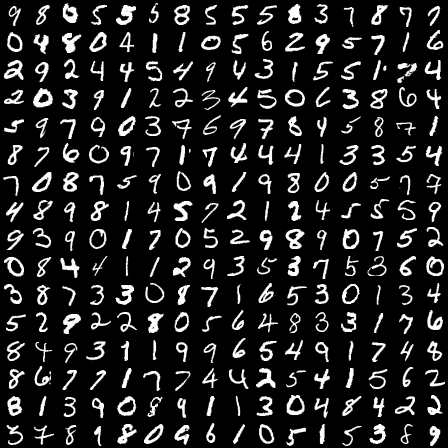 9 8 0 5 5 5 8 5 5 5 8 3 7 8 7 7
0 4 8 0 4 1 1 0 5 6 2 9 5 7 1 6
2 9 2 4 4 5 4 9 4 3 1 5 5 1 4
2 0 3 9 1 2 2 3 4 5 0 6 3 8 6 4
5 9 7 9 0 3 7 6 9 7 8 4 5 8 7 1
8 7 6 0 9 7 1 7 4 4 4 1 3 3 5 4
7 0 8 7 5 9 0 9 1 9 8 0 0 5 7 7
4 8 9 8 1 4 5 7 2 1 2 4 5 5 5 9
9 3 9 0 1 7 0 5 2 9 8 9 0 7 5 2
0 8 4 4 1 1 2 9 3 5 3 7 5 3 6 0
3 8 7 3 3 0 8 7 1 6 5 3 0 1 3 4
5 2 9 2 2 8 0 5 6 4 8 3 3 1 7 6
8 4 9 3 1 1 9 9 6 5 4 9 1 7 4 4
8 6 7 7 1 7 7 4 4 2 5 4 1 5 6 2
8 1 3 9 0 8 9 1 1 3 0 4 8 4 2 2
3 7 8 1 8 0 9 6 1 0 5 1 5 3 8 9